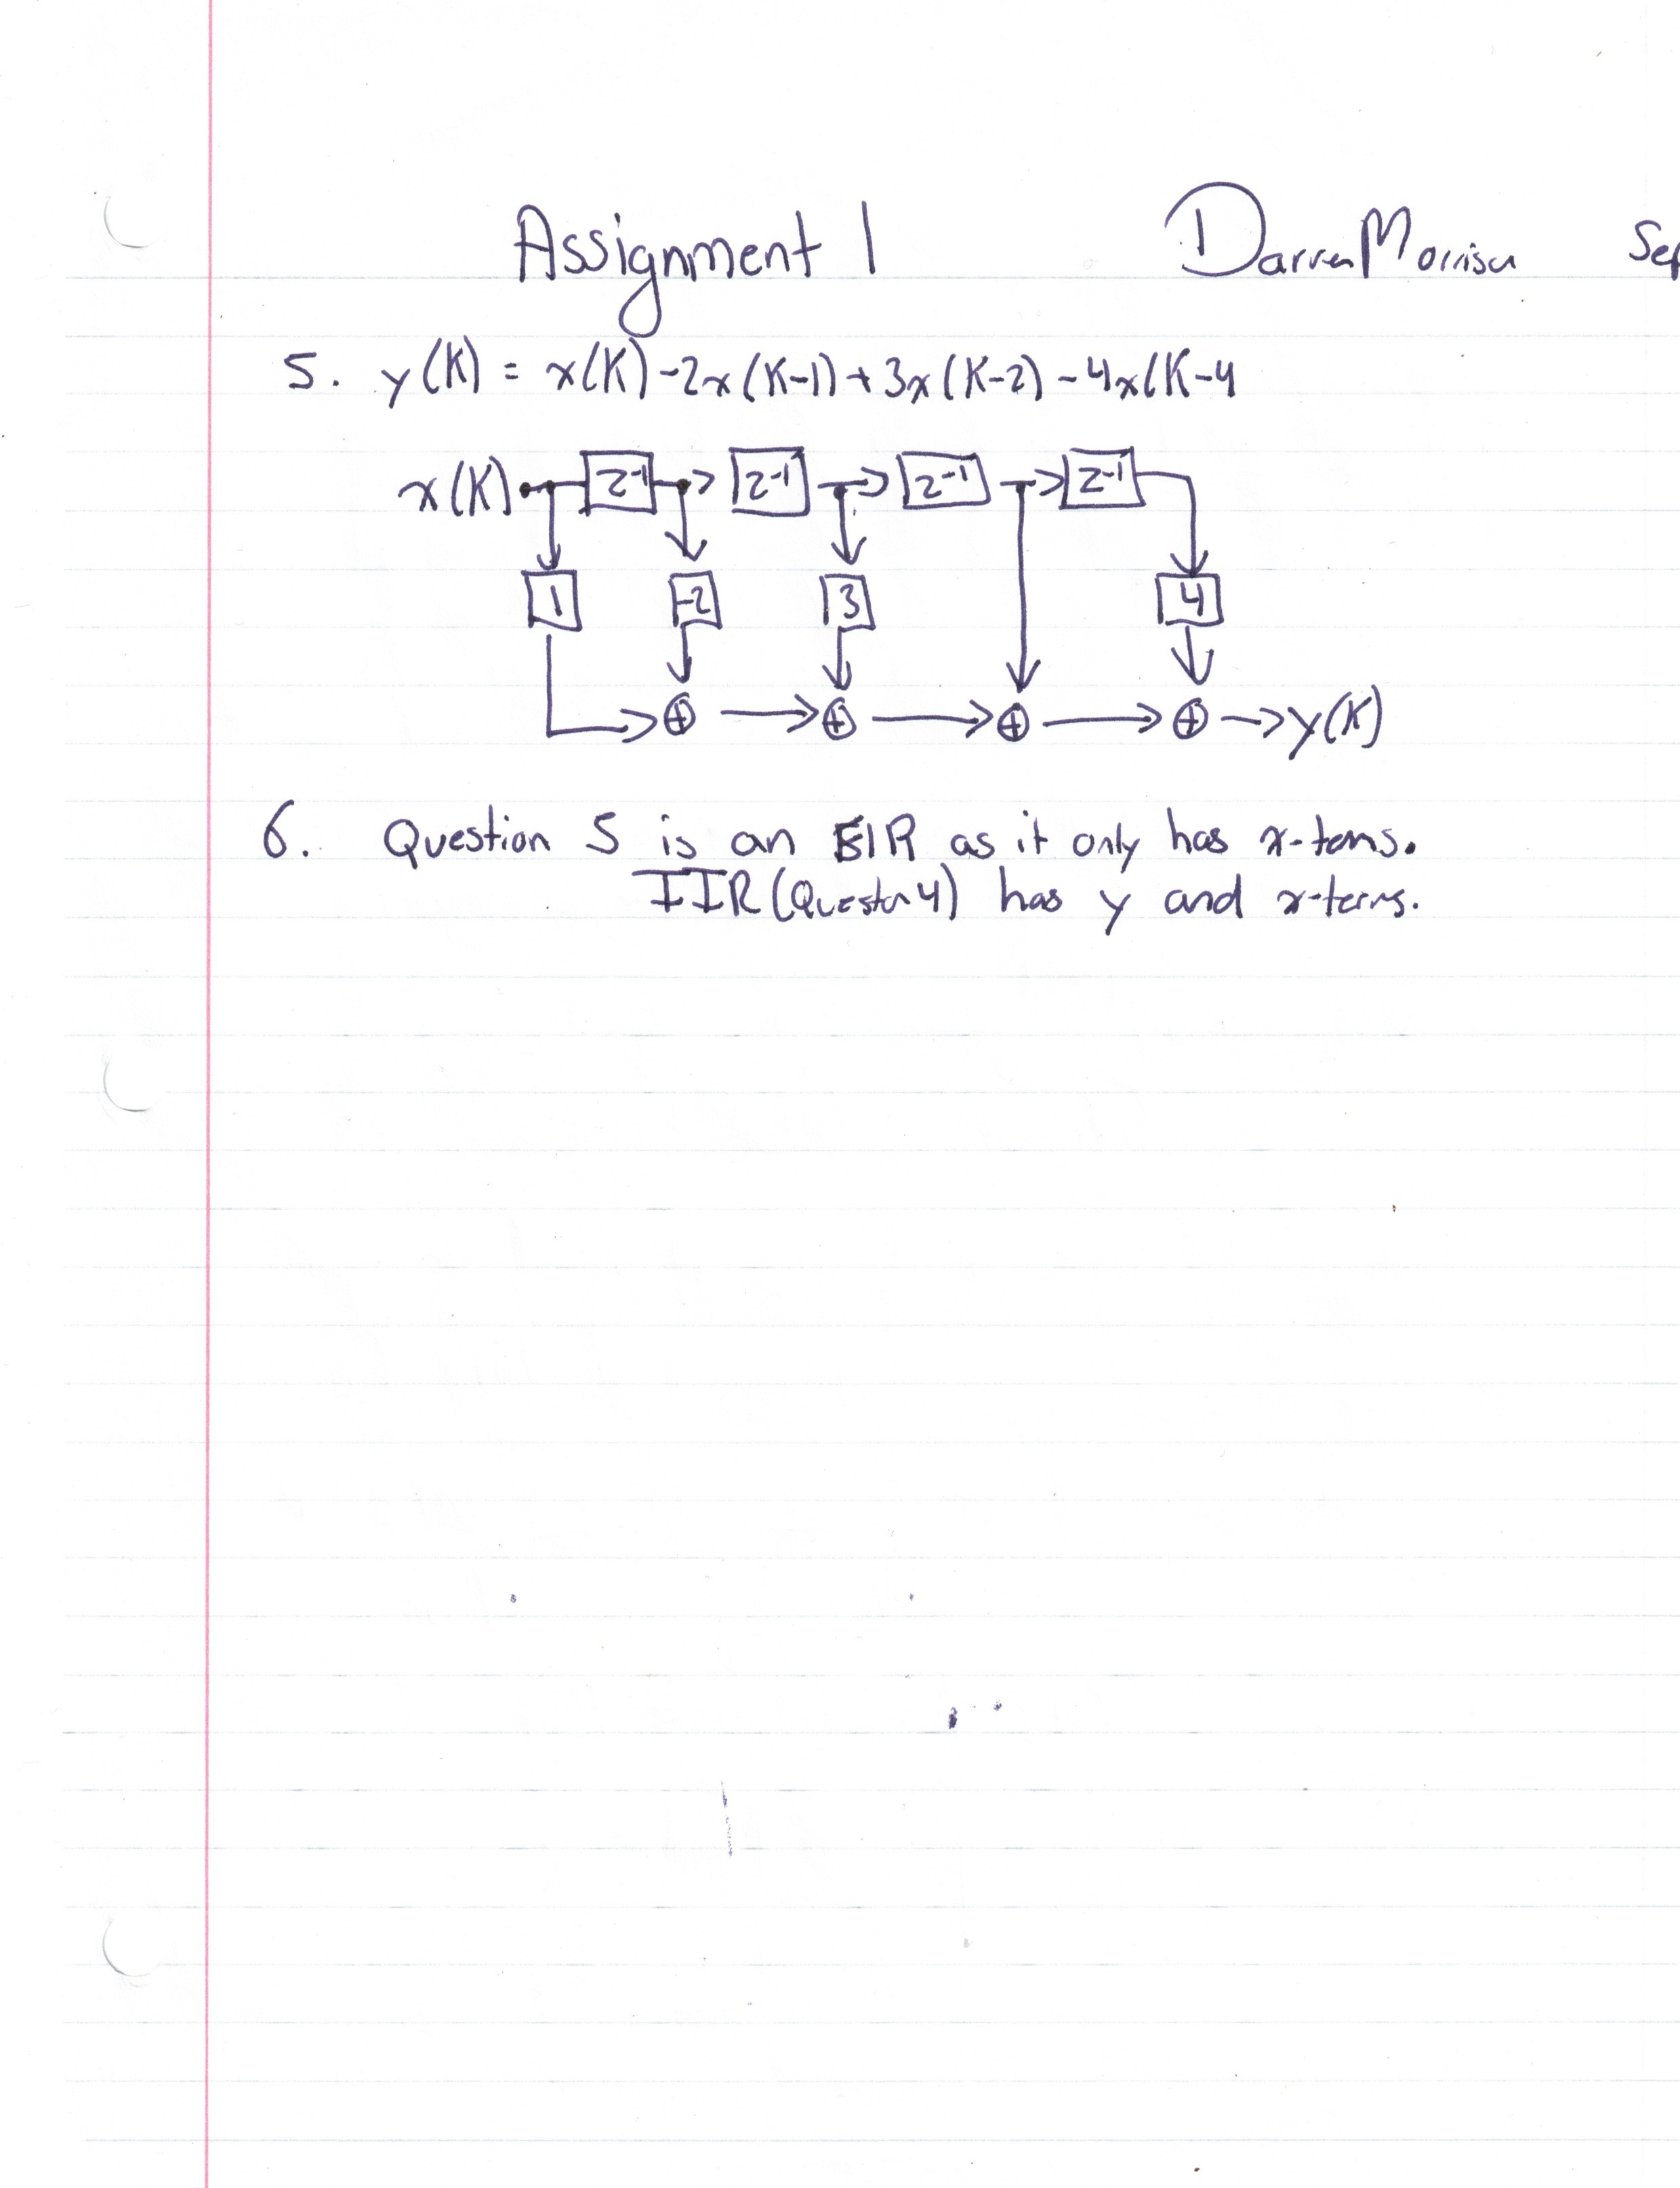 Assignment 1 Darren Morrison Sep
5. y(K) = x(K) -2x(K-1) + 3x(K-2) - 4x(K-4
x(K) z-1 z-1 z-1 z-1
1 -2 3 4
+ + + + y(K)
6. Question 5 is an FIR as it only has x-terms.
IIR (Question 4) has y and x-terms.